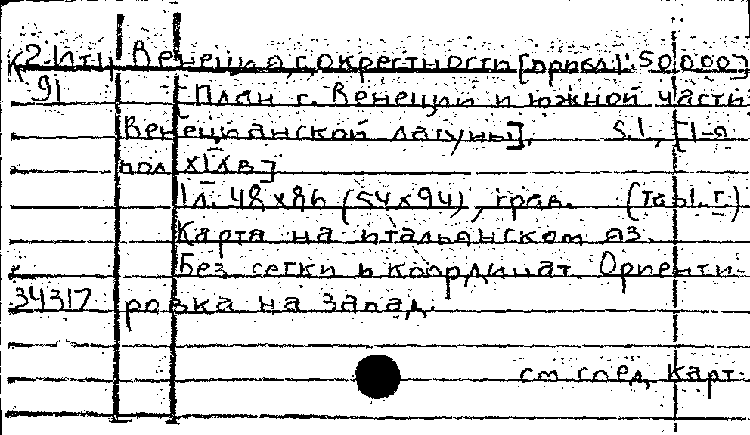 К2-Ит1 Венеция, с окрестности [прибл 1:50000]
91 [План г. Венеции и южной части
Венецианской лагуны]. S.l., [1-я
пол XIX в]
1 л. 48x86 (54x94), грав. (Tabl. I.)
Карта на итальянском яз.
Без сетки и координат. Ориенти-
34317 ровка на запад.
см спец карт.